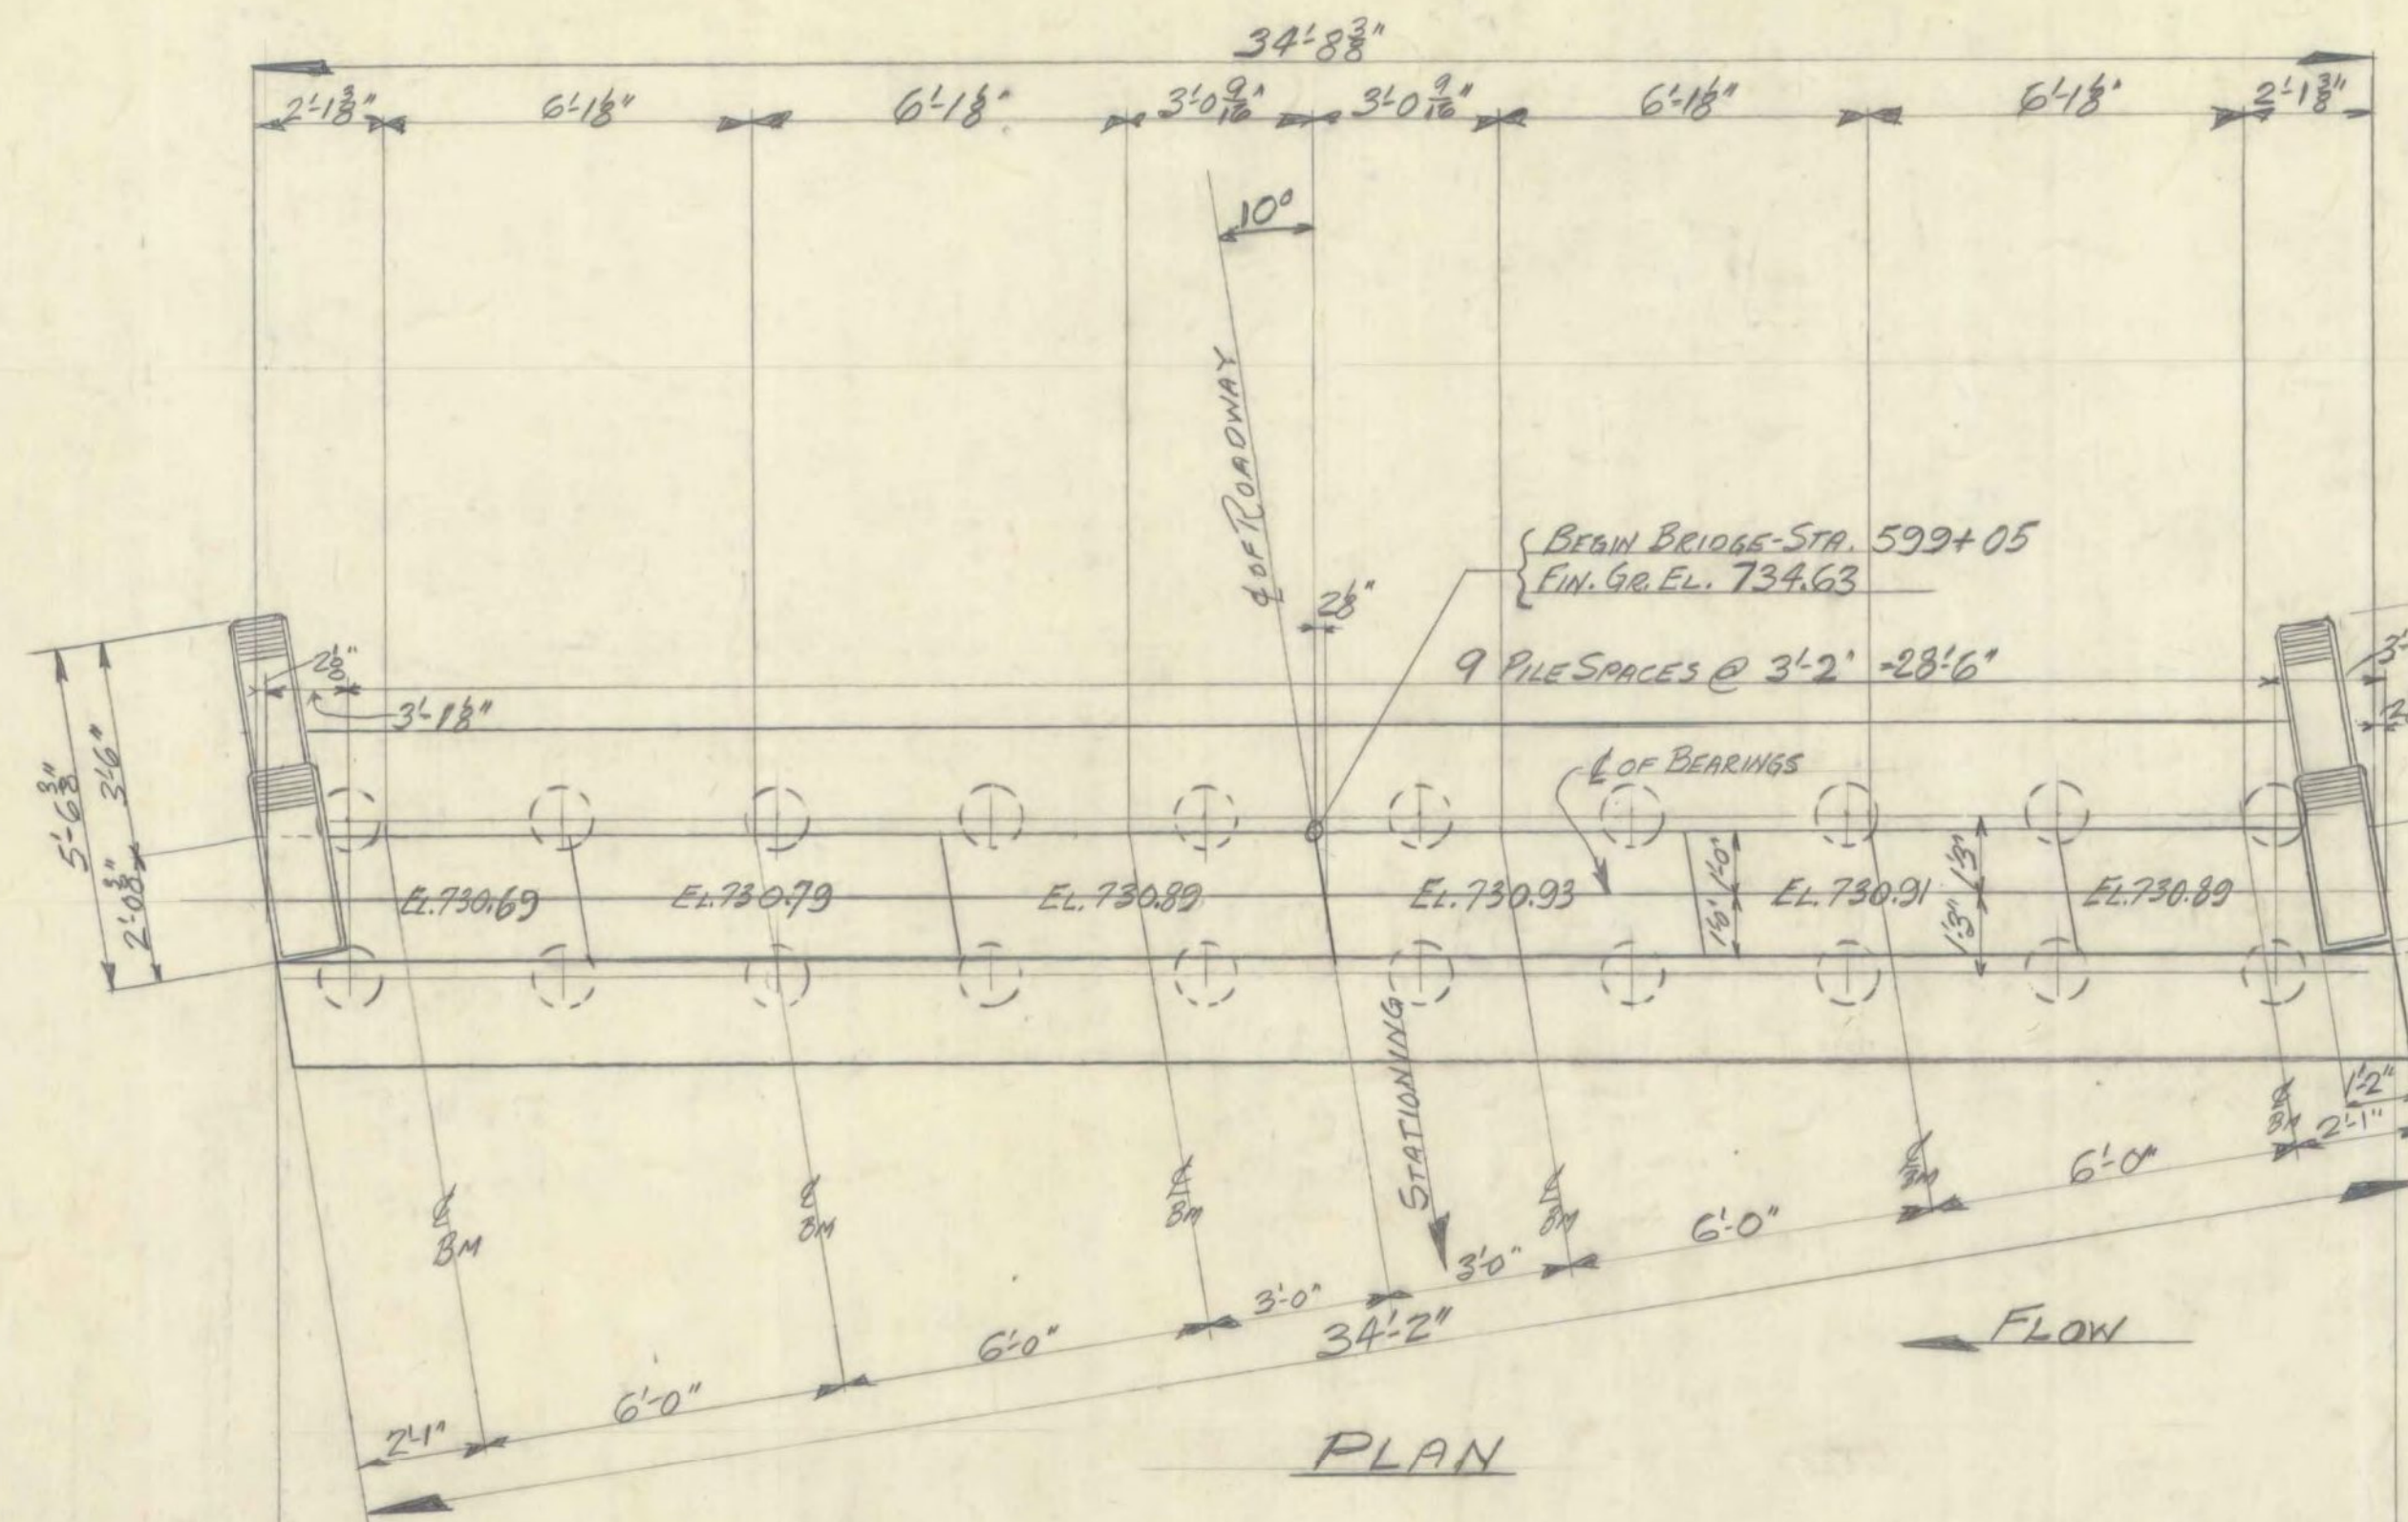 34'-8 3/8"
2'-1 3/8" 6'-1 1/8" 6'-1 1/8" 3'-0 9/16" 3'-0 9/16" 6'-1 1/8" 6'-1 1/8" 2'-1 3/8"
10°
℄ OF ROADWAY
BEGIN BRIDGE-STA. 599+05
FIN. GR. EL. 734.63
2 1/8"
9 PILE SPACES @ 3'-2" =28'-6"
2 1/8"
3'-1 1/8"
5'-6 3/8"
3'-6"
2'-0 3/8"
℄ OF BEARINGS
EL. 730.69 EL. 730.79 EL. 730.89 EL. 730.93 EL. 730.91 EL. 730.89
1'-0"
1'-3"
1'-3"
STATIONING
℄ BM
℄ BM
℄ BM
℄ BM
℄ BM
℄ BM
1'-2"
2'-1" 6'-0" 6'-0" 3'-0" 3'-0" 6'-0" 6'-0" 2'-1"
34'-2"
FLOW
PLAN